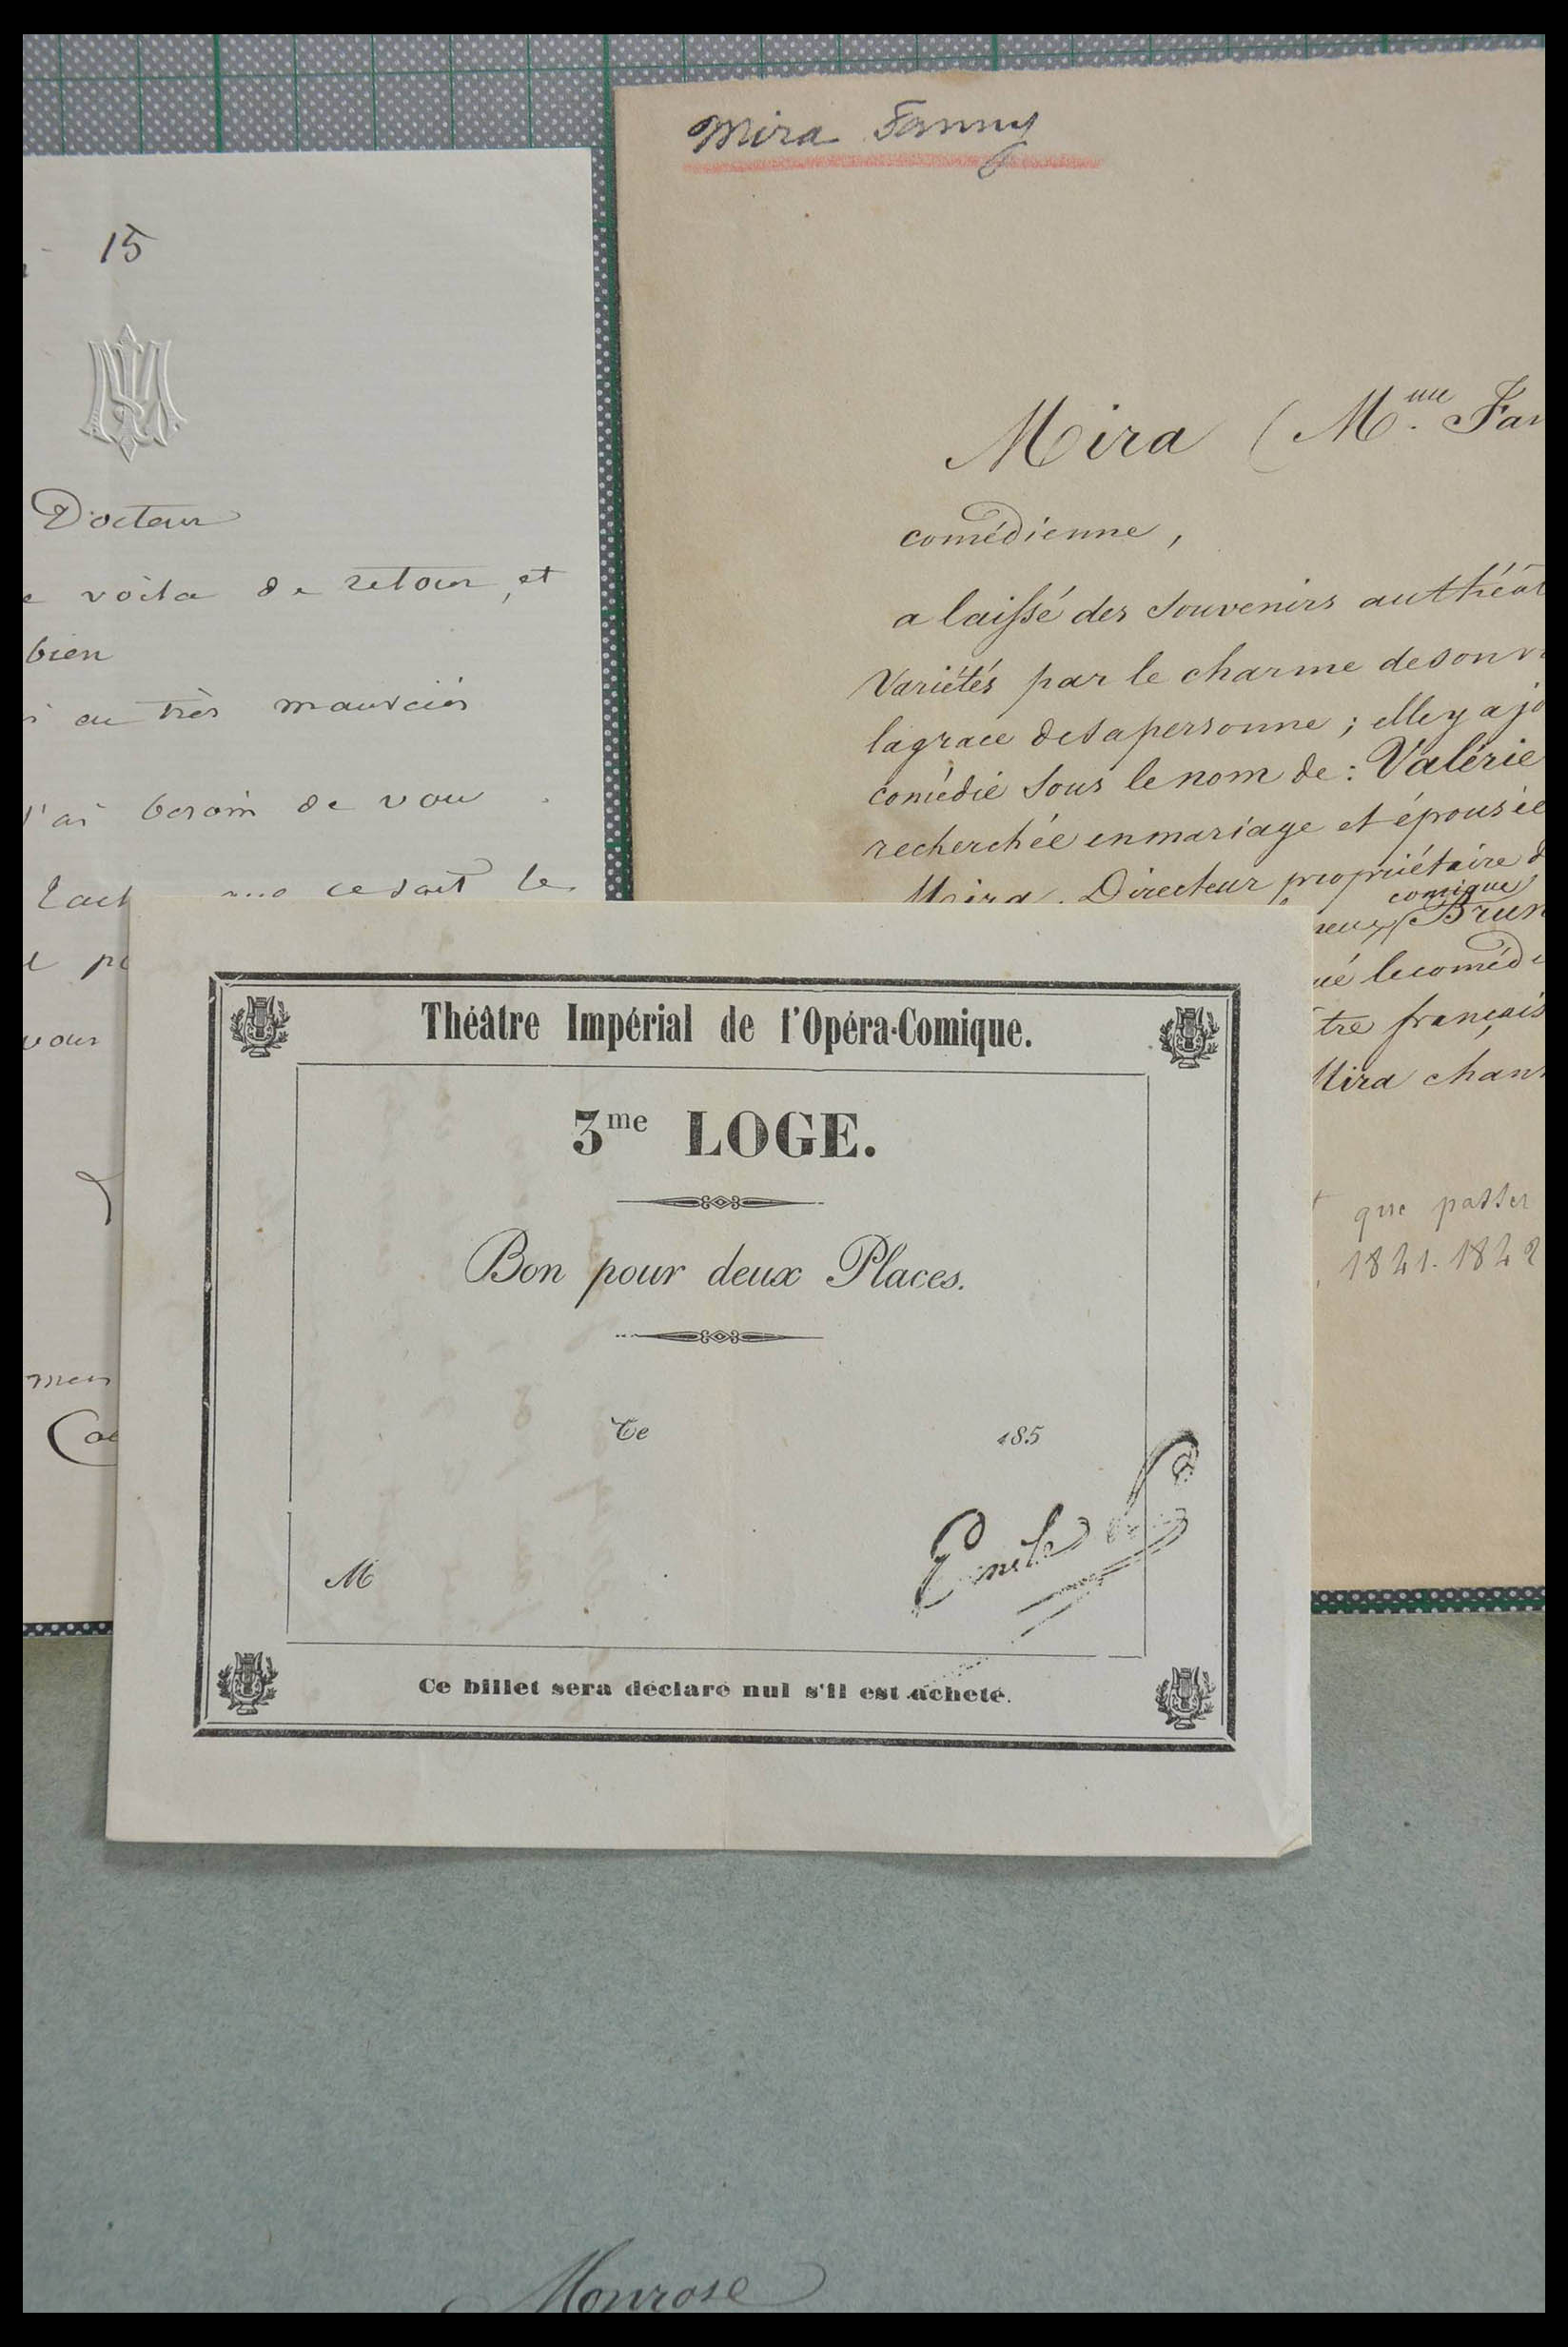 15
Docteur
voila de retour, et
bien
au très mauvais
J'ai besoin de vous
ce soit le
vous
Mira Fanny
Mira (Mme Fan
comédienne,
a laissé des souvenirs au théât
Variétés par le charme de son v
la grace de sa personne ; elle y a jo
comédie sous le nom de : Valérie
recherchée en mariage et épousée
Mira. Directeur propriétaire d
comique
Brun
le coméd
tre français
Mira chan
que passer
1841-1842
Théâtre Impérial de l'Opéra-Comique.
3me LOGE.
Bon pour deux Places.
Ce 185
Emile
M
Ce billet sera déclaré nul s'il est acheté.
Monrose